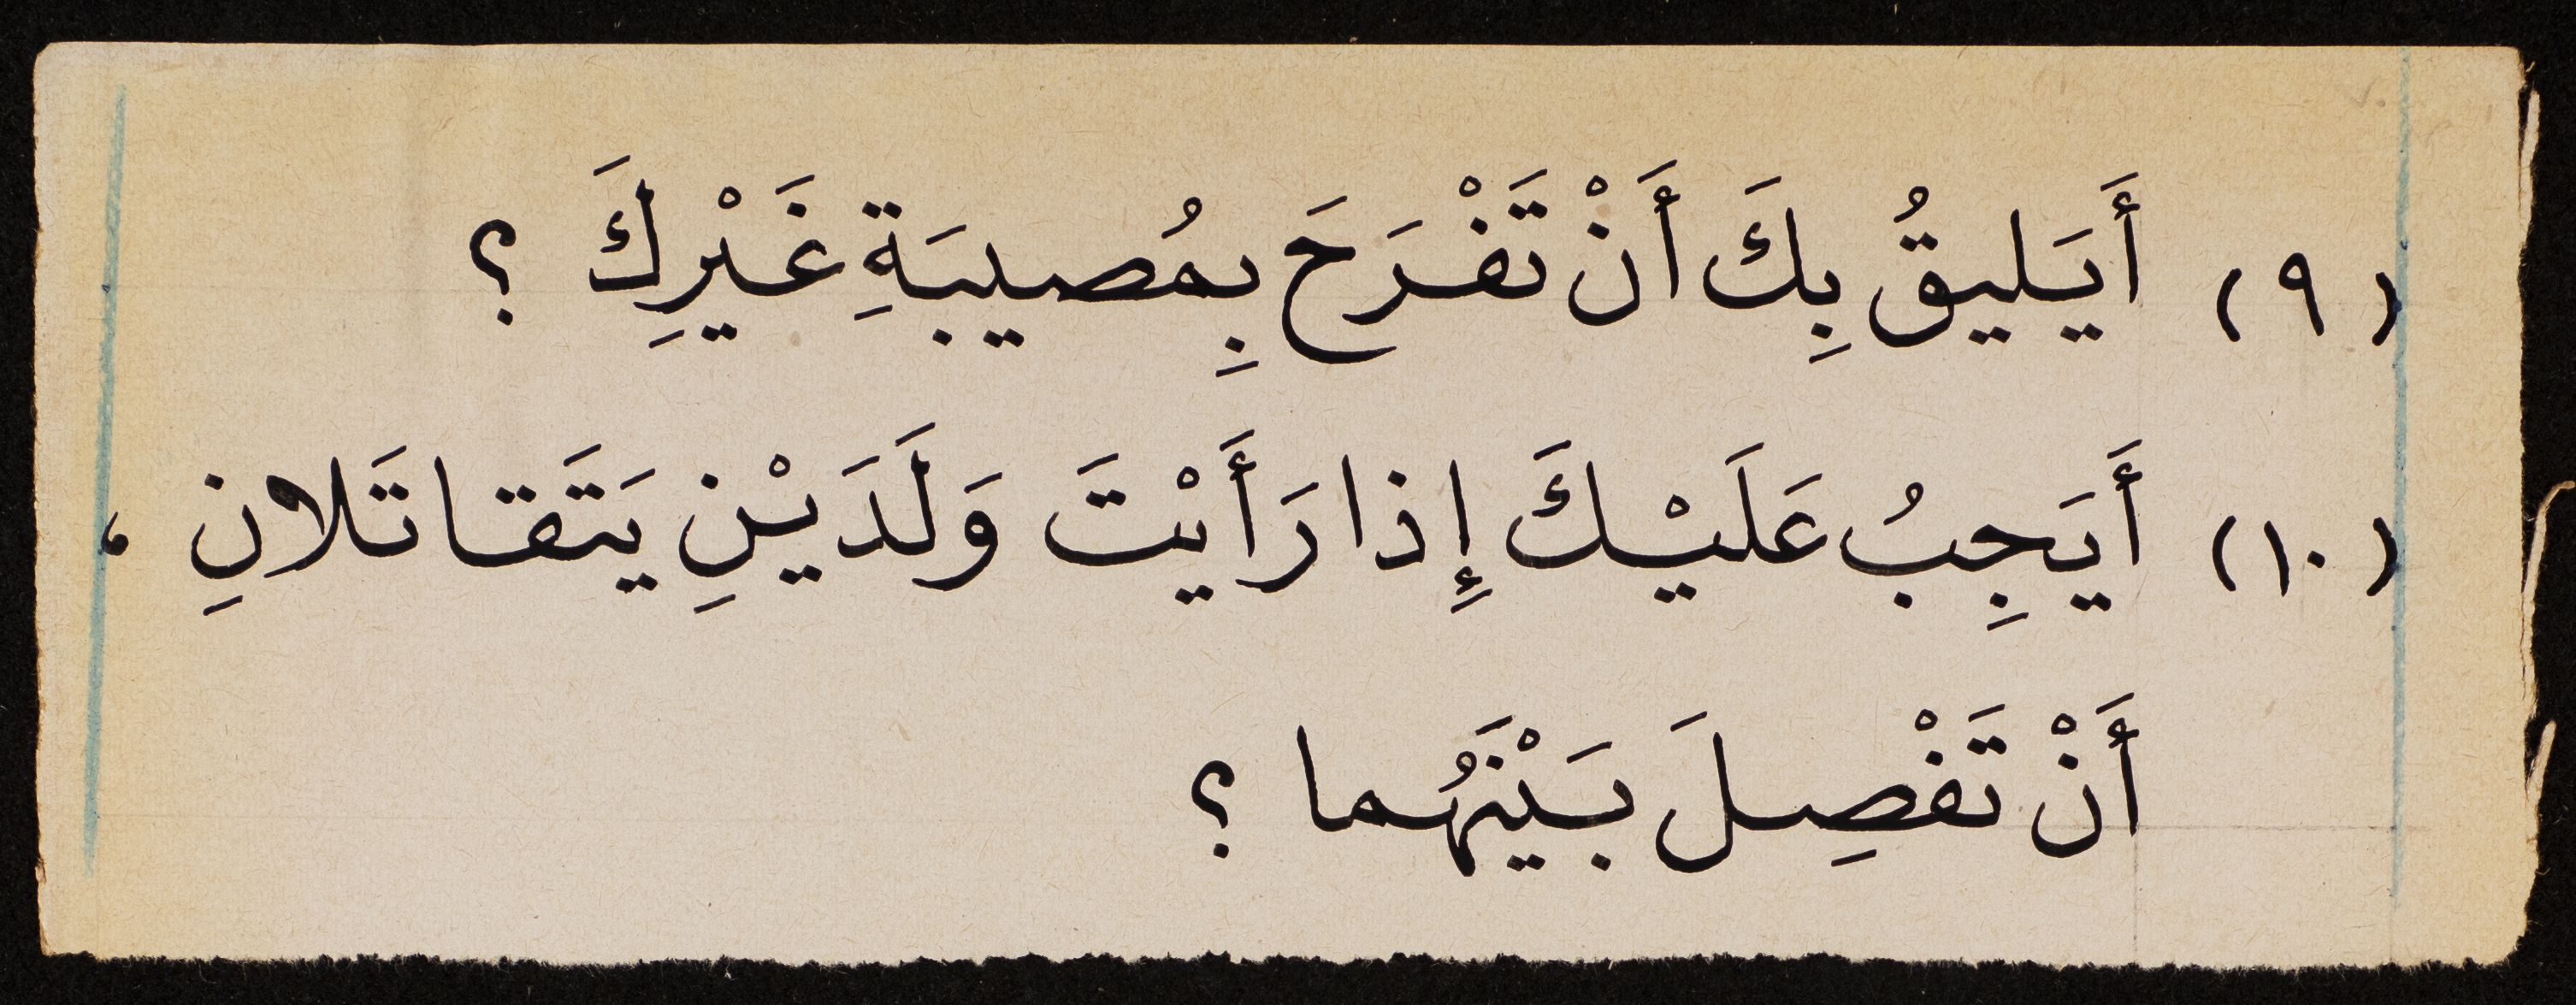 (٩) أَيَليقُ بِكَ أَنْ تَفْرَحَ بِمُصيبَةِ غَيْرِكَ ؟
(١٠) أَيَجِبُ عَلَيْكَ إِذا رَأَيْتَ وَلَدَيْنِ يَتَقاتَلانِ ،
أَنْ تَفْصِلَ بَيْنَهُما ؟